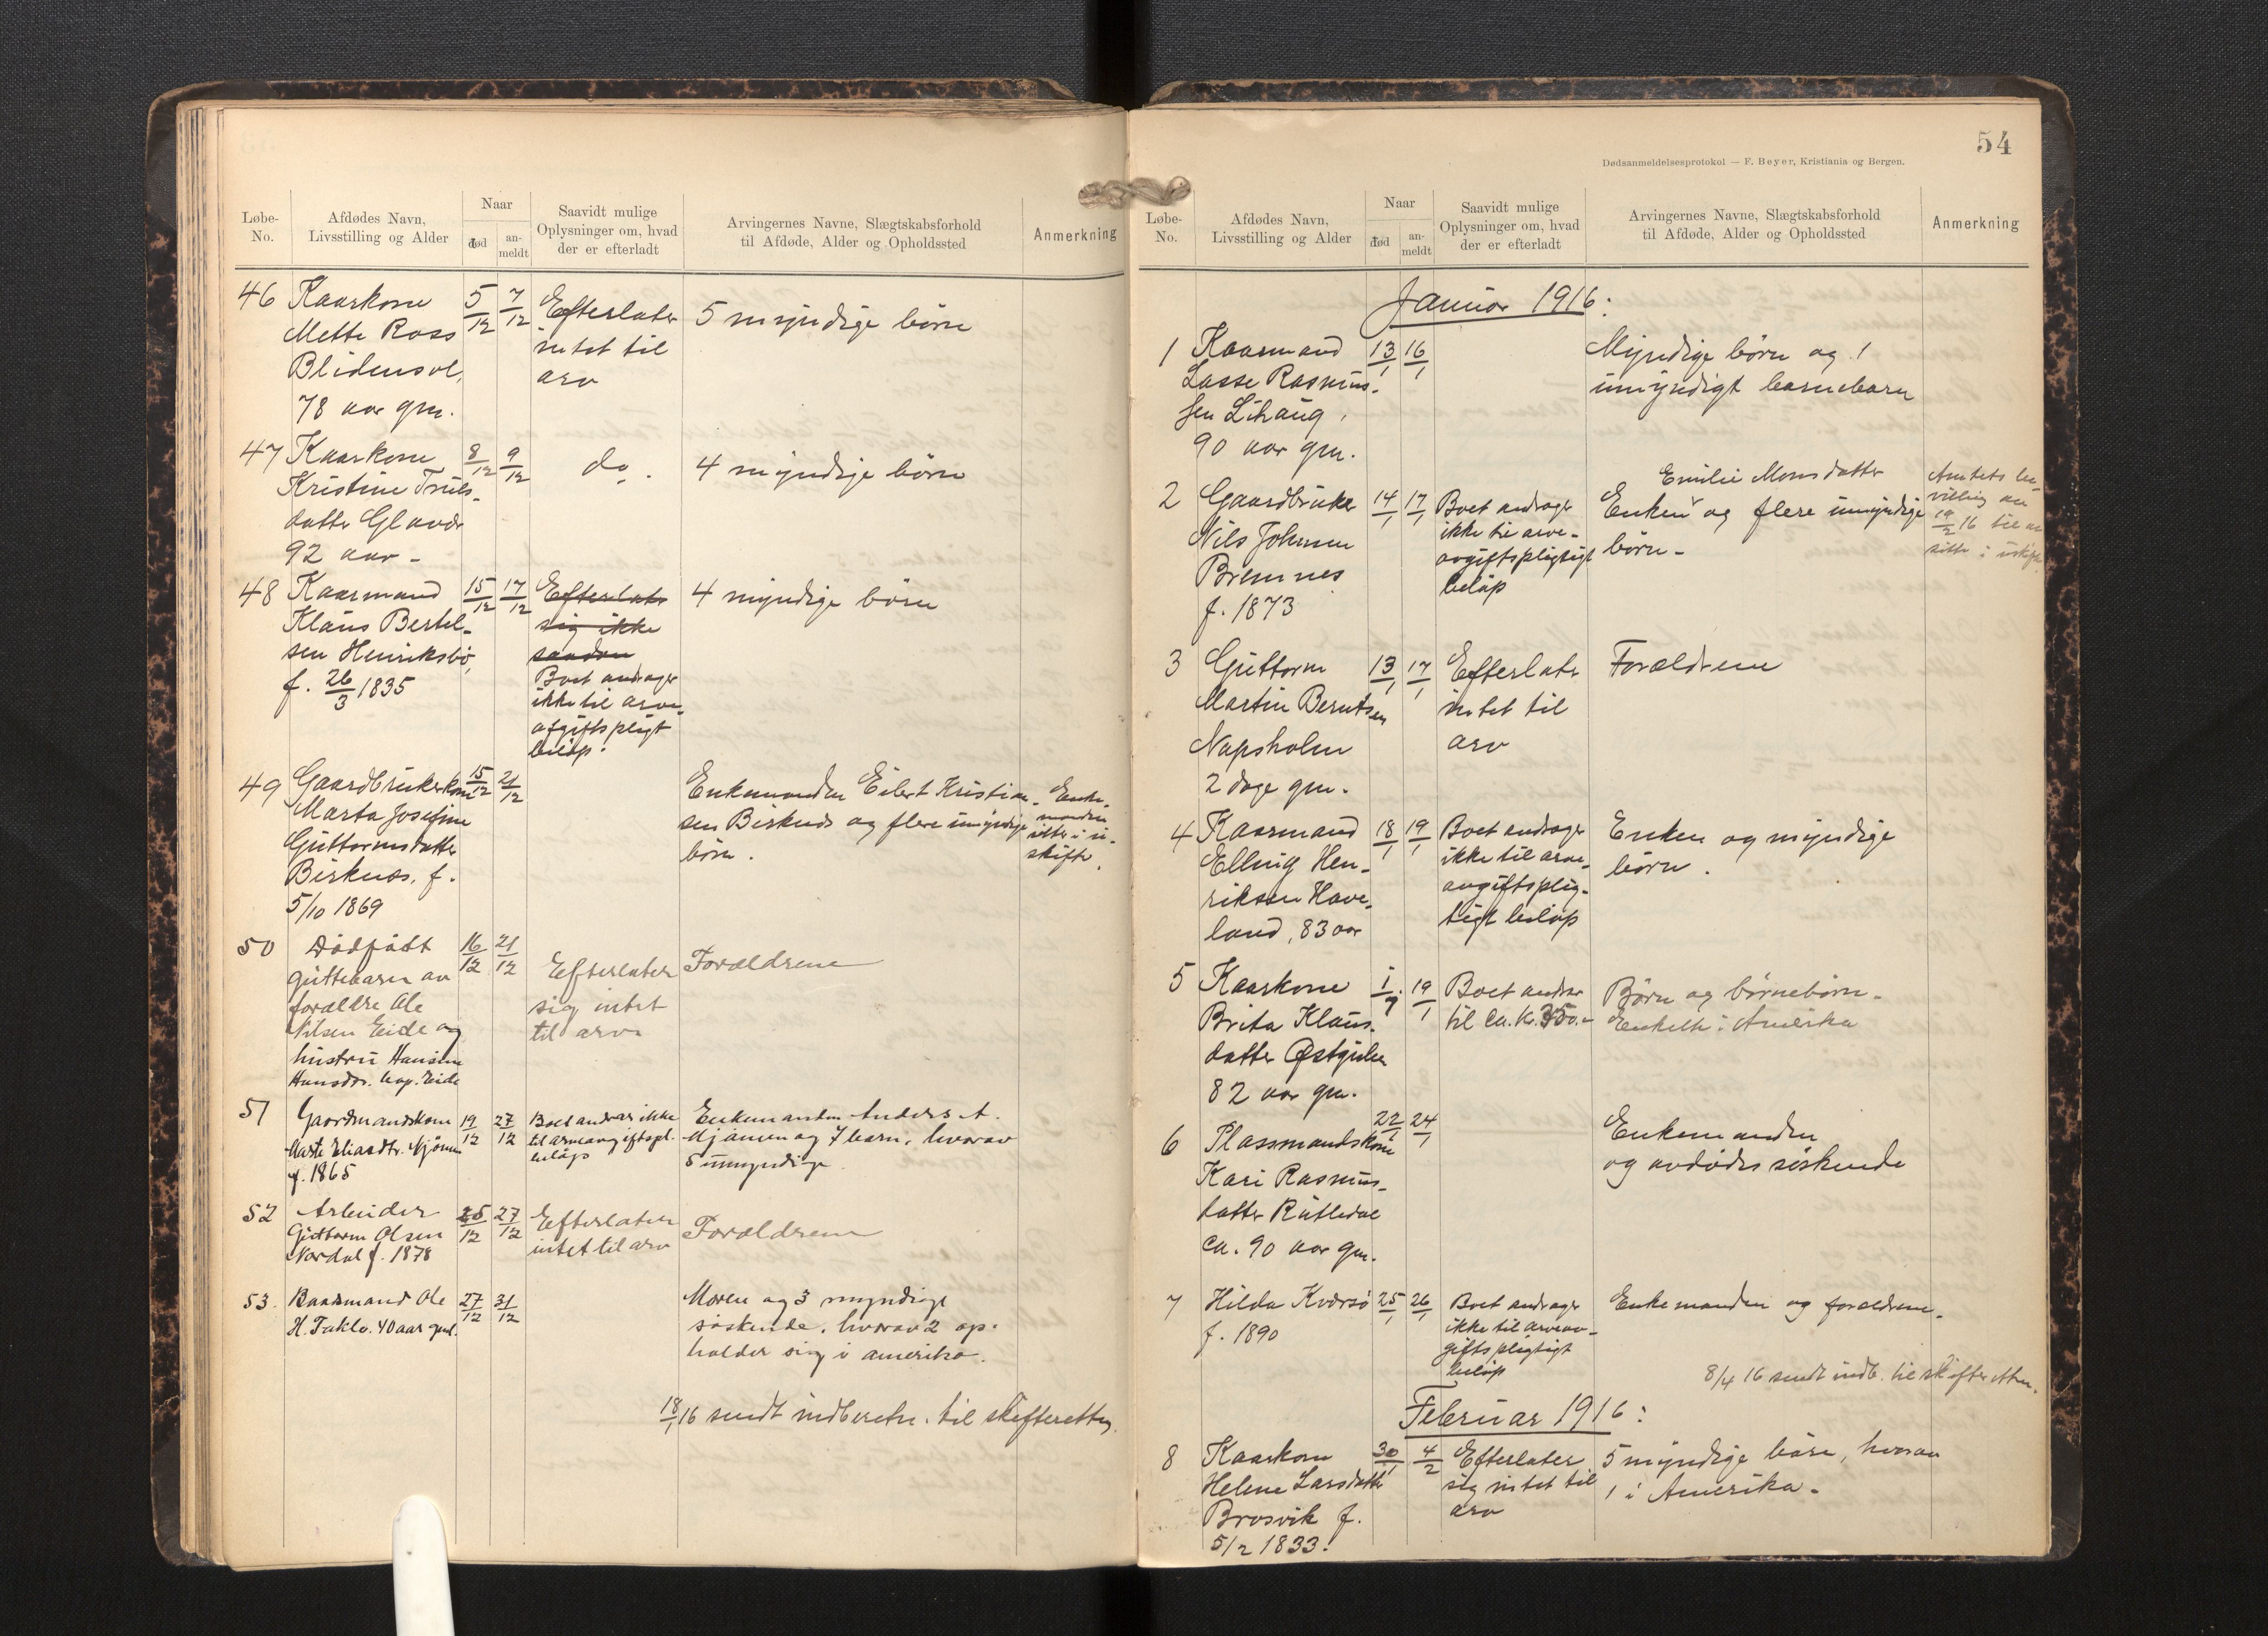 Løbe-
No.
Afdødes Navn,
Livsstilling og Alder
Naar
død
an-
meldt
Saavidt mulige
Oplysninger om, hvad
der er efterladt
Arvingernes Navne, Slægtskabsforhold
til Afdøde, Alder og Opholdssted
Anmerkning
46 Kaarkone 5/12 7/12 Efterlater 5 myndige børn
Mette Ross
intet til
Blidensol,
arv
78 aar gm.
47 Kaarkone 8/12 9/12 do. 4 myndige børn
Kristine Truls-
datter Glavær
92 aar -
48 Kaarmand 15/12 17/12 Efterlate 4 myndige børn
Klaus Bertel-
sig ikke
sen Henriksbø,
f. 26/3 1835
Boet andrager
ikke til arve-
afgiftspligt
beløp.
49 Gaardbrukerkone 15/12 21/12 Enkemanden Eilert Kristian-
Marta Josefine
sen Birknes og flere umyndige
Guttormsdatter
børn.
Birknes, f.
5/10 1869
Enke-
manden
sitter i u-
skifte.
50 Dødfødt 16/12 21/12 Efterlater Forældrene
guttebarn av
sig intet
forældre Ole
til arv
Nilsen Eide og
hustru Hansine
Hansdr. Eide
51 Gaardmandskone 19/12 27/12 Boet andrar ikke Enkemanden Anders A.
Marte Eliasdtr. Mjømen
til arveavgiftspl. Mjømen og 7 barn, hvorav
f. 1865
beløp
5 umyndige.
52 Arbeider 25/12 27/12 Efterlater Forældrene
Guttorm Olsen
intet til arv
Nordal f. 1878
53. Kaarmand Ole 27/12 31/12 Moren og 3 myndige
H. Takle. 40 aar gml.
søskende, hvorav 2 op-
holder sig i amerika.
18/1 16 sendt indberetn. til skifteretten.
54
Dødsanmeldelsesprotokol — F. Beyer, Kristiania og Bergen.
Løbe-
No.
Afdødes Navn,
Livsstilling og Alder
Naar
død
an-
meldt
Saavidt mulige
Oplysninger om, hvad
der er efterladt
Arvingernes Navne, Slægtskabsforhold
til Afdøde, Alder og Opholdssted
Anmerkning
Januar 1916:
1 Kaarmand 13/1 16/1 Myndige børn og 1
Lasse Rasmus-
umyndigt barnebarn
sen Lihaug,
90 aar gm.
Emilie Monsdatter
2 Gaardbruker 14/1 17/1 Boet andrager Enken og flere umyndige
Nils Johnsen
ikke til arve-
børn -
Bremnes
avgiftspligtigt
f. 1873
beløp
Amtets be-
villing av
19/2 16 til at
sitte i uskifte
3 Guttorm 13/1 17/1 Efterlater Forældrene
Martin Berntsen
intet til
Napsholm
arv
2 dage gm.
4 Kaarmand 18/1 19/1 Boet andrager Enken og myndige
Elling Hen-
ikke til arve-
børn.
riksen Have-
avgiftsplig-
land, 83 aar
tigt beløp
5 Kaarkone 19/1 Boet andrar Børn og børnebørn -
Brita Klaus-
til ca. kr. 350.-
Enkelte i Amerika
datter Østgulen
82 aar gm.
6 Plassmandskone 22/1 24/1 Enkemanden
Kari Rasmus-
og avdødes søskende
datter Rutledal
ca. 90 aar gm.
7 Hilda Kversø 25/1 26/1 Boet andrager Enkemanden og forældrene.
f. 1890
ikke til arveav-
giftspligtigt
beløp
8/4 16 sendt indb. til skifteretten.
Februar 1916:
8 Kaarkone 30/1 4/2 Efterlater 5 myndige børn, hvorav
Helene Larsdatter
sig intet til
1 i Amerika.
Brosvik f.
arv
5/2 1833.